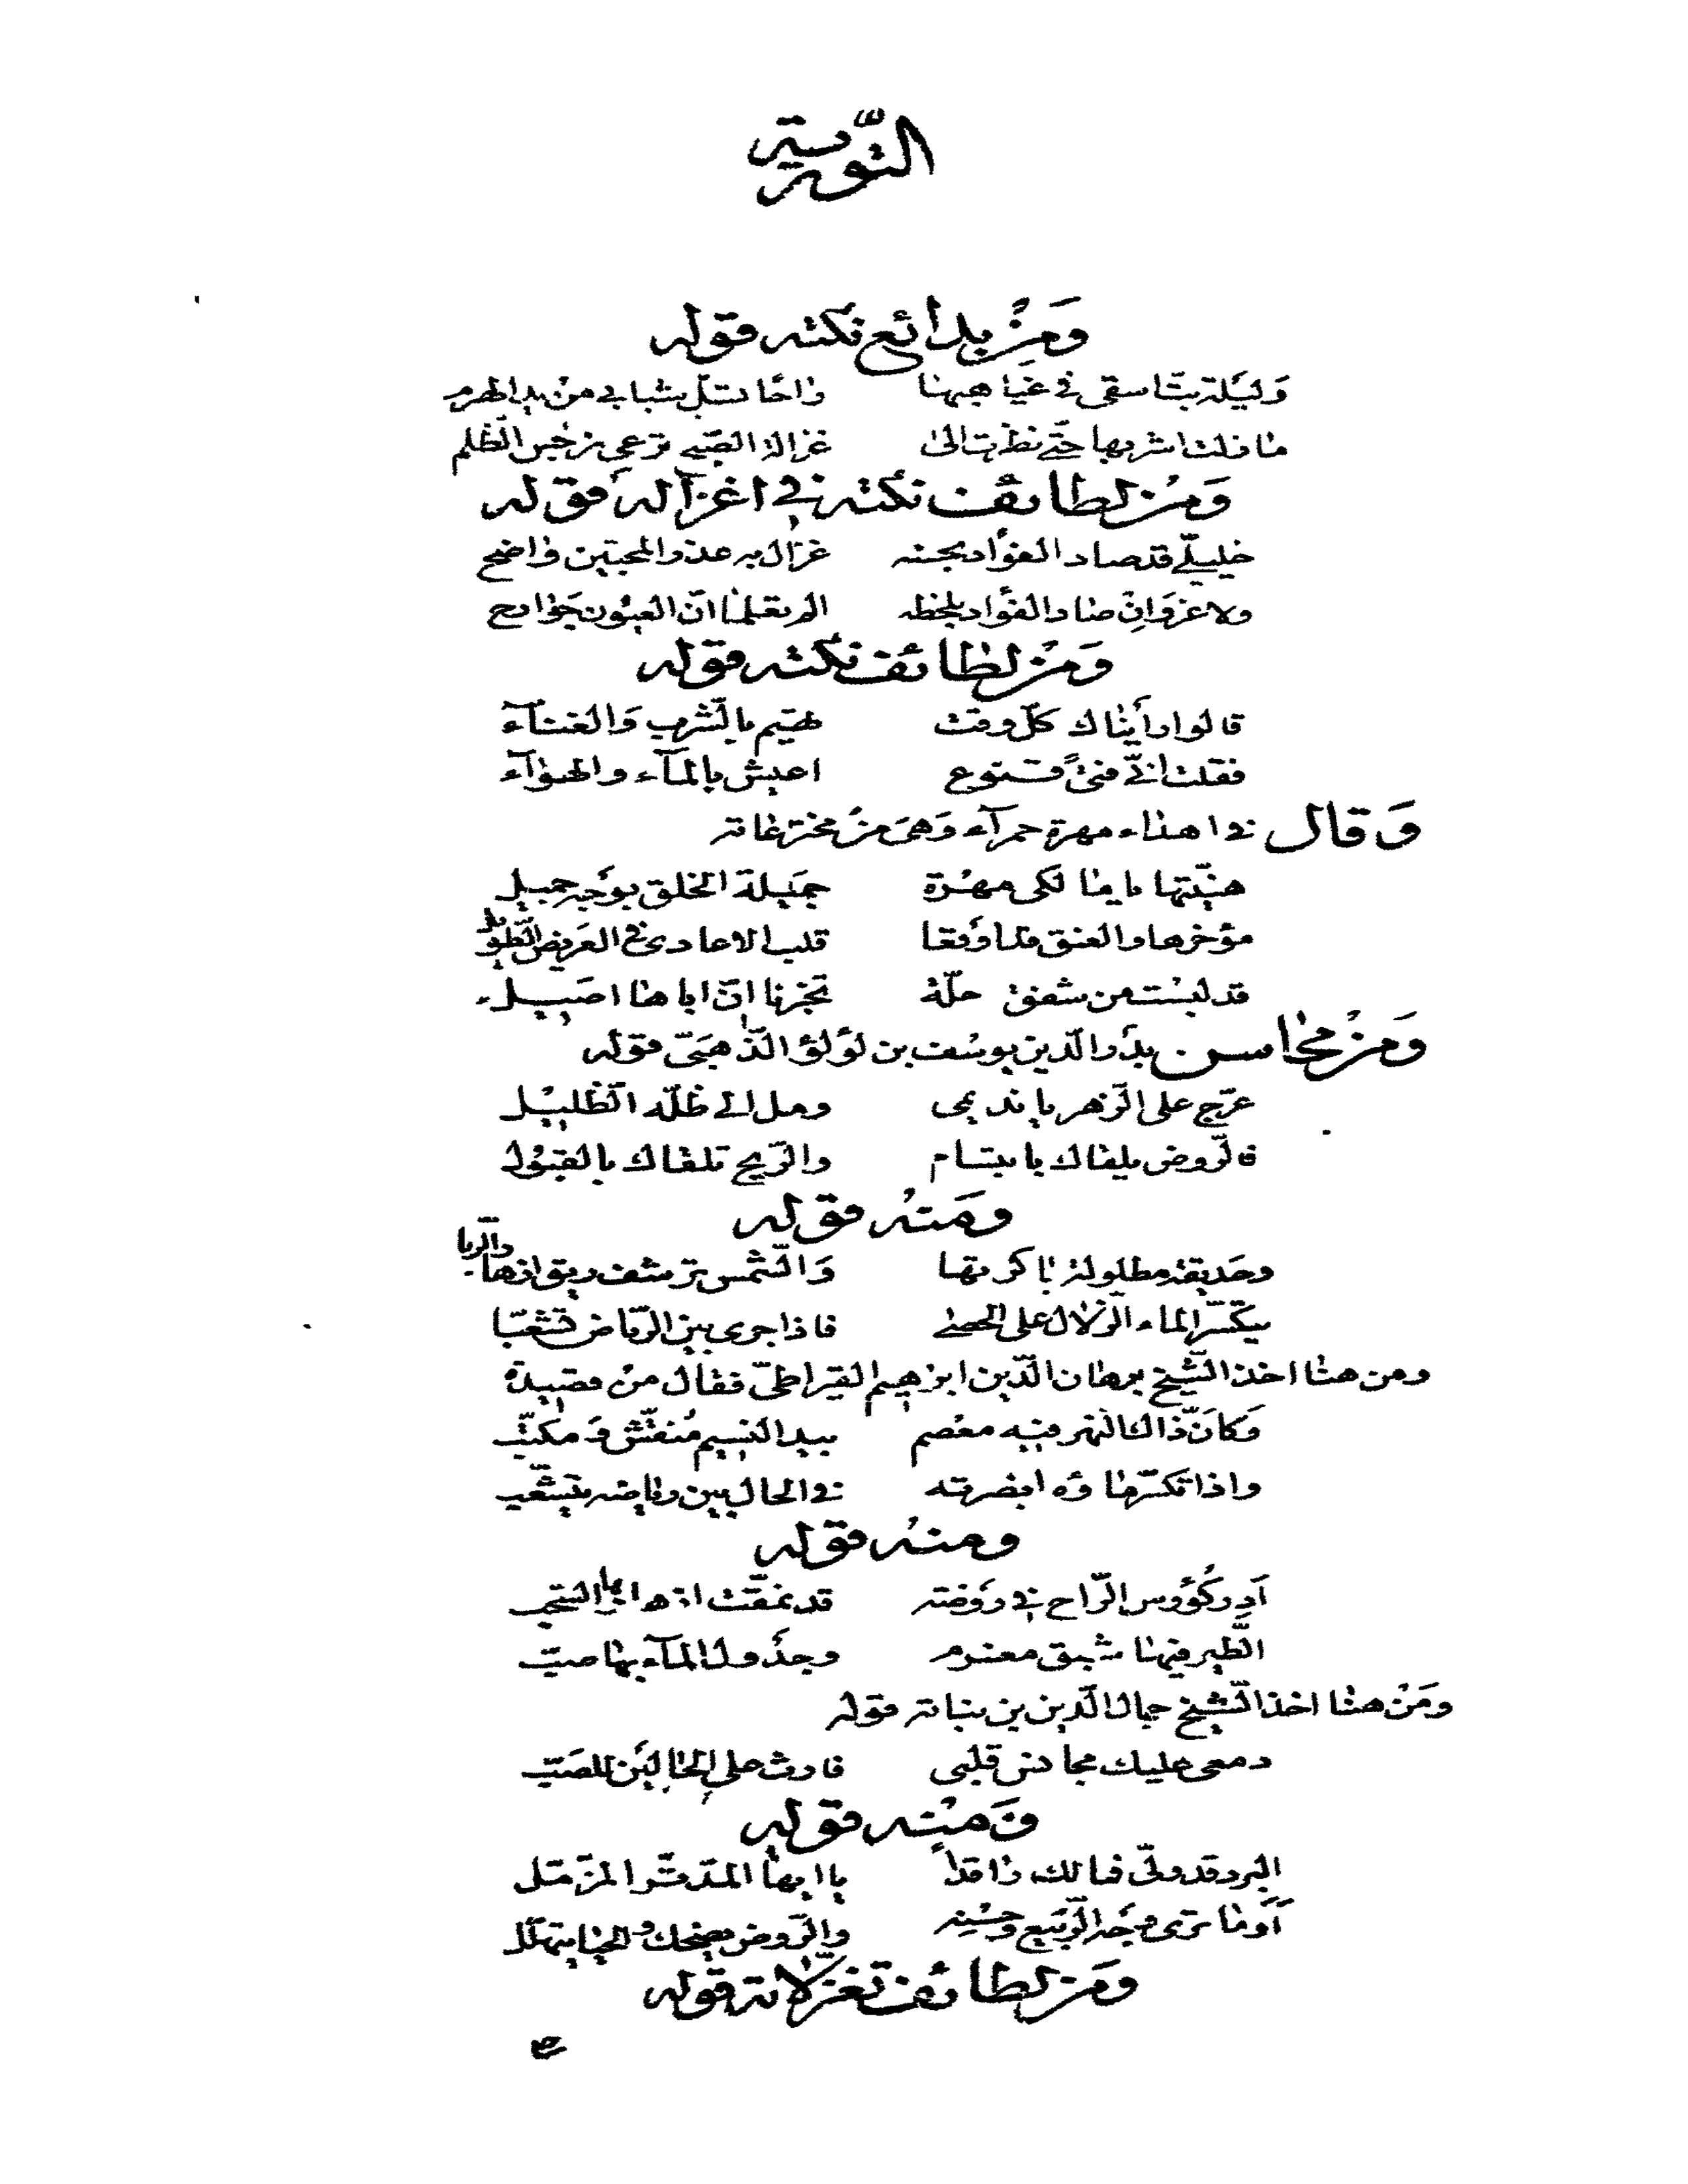 التورية
ومن بدائع نكته قوله
وليلة بتّ اسقى في غياهبها راحًا تسلّ شبابي من يد الهرم
ما زلت اشربها حتّى نظرت الى غزالة الصّبح ترعى نرجس الظّلم
ومن لطائف نكته في اغزاله قوله
خليليّ قد صاد الفؤاد بحسنه غزال به عذر المحبّين واضح
ولا غرو ان صاد الفؤاد بلحظه الم تعلما انّ العيون جوارح
ومن لطائف نكته قوله
قالوا رأيناك كلّ وقت تهيم بالشّرب والغناء
فقلت انّي فتىً قنوع اعيش بالمآء والهوآء
وقال في اهداء مهرة حمرآء وهى من مخترعاته
هنّيتها يا مالكى مهرة جميلة الخلق بوجه جميل
مؤخرها والعنق قد اوقعا قلب الاعادى في العريض الطّويل
قد لبست من شفق حلّة تخبرنا انّ اباها اصيل
ومن محاسن بدر الدّين يوسف بن لؤلؤ الذّهبىّ قوله
عرّج على الزّهر يا نديمى ومل الى ظلّه الظّليل
فالرّوض يلقاك بابتسام والرّيح تلقاك بالقبول
ومنه قوله
وحديقة مطلولة باكرتها والشّمس ترشف ريق ازهار الرّبا
يتكسّر الماء الزّلال على الحصى فاذا جرى بين الرّياض تشعّبا
ومن هنا اخذ الشّيخ برهان الدّين ابرهيم القيراطىّ فقال من قصيدة
وكانّ ذاك النّهر فيه معصم بيد النسيم منقّش ومكتّب
واذا تكسّر ماؤه ابصرته في الحال بين رياضه يتشعّب
ومنه قوله
أدر كؤوس الرّاح في روضة قد نمّقت ازهارها السّحب
الطّير فيها شيّق مغرم وجدول المآء بها صبّ
ومن هنا اخذ الشّيخ جمال الدّين بن نباته قوله
دمعى عليك مجانس قلبى فارث على الحالين للصّبّ
ومنه قوله
البرد قد ولّى فمالك راقدًا يا ايها المدّثّر المزّمّل
أوما ترى وجه الرّبيع وحسنه والرّوض يضحك والحيا يتهلّل
ومن لطائف تغزّلاته قوله